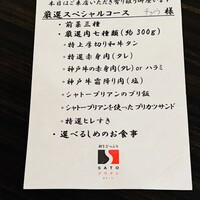 本日はご来店いただき誠に有り難う御座います
厳選スペシャルコース 様
・前菜三種
・厳選肉七種類(約300g)
・特上厚切り和牛タン
・特選赤身肉(タレ)
・神戸牛の赤身肉(タレ)orハラミ
・神戸牛霜降り肉(塩)
・シャトーブリアンのブリ飯
・シャトーブリアンを使ったブリカツサンド
・特選ヒレすき
・選べる〆のお食事
SATO
ブリアン